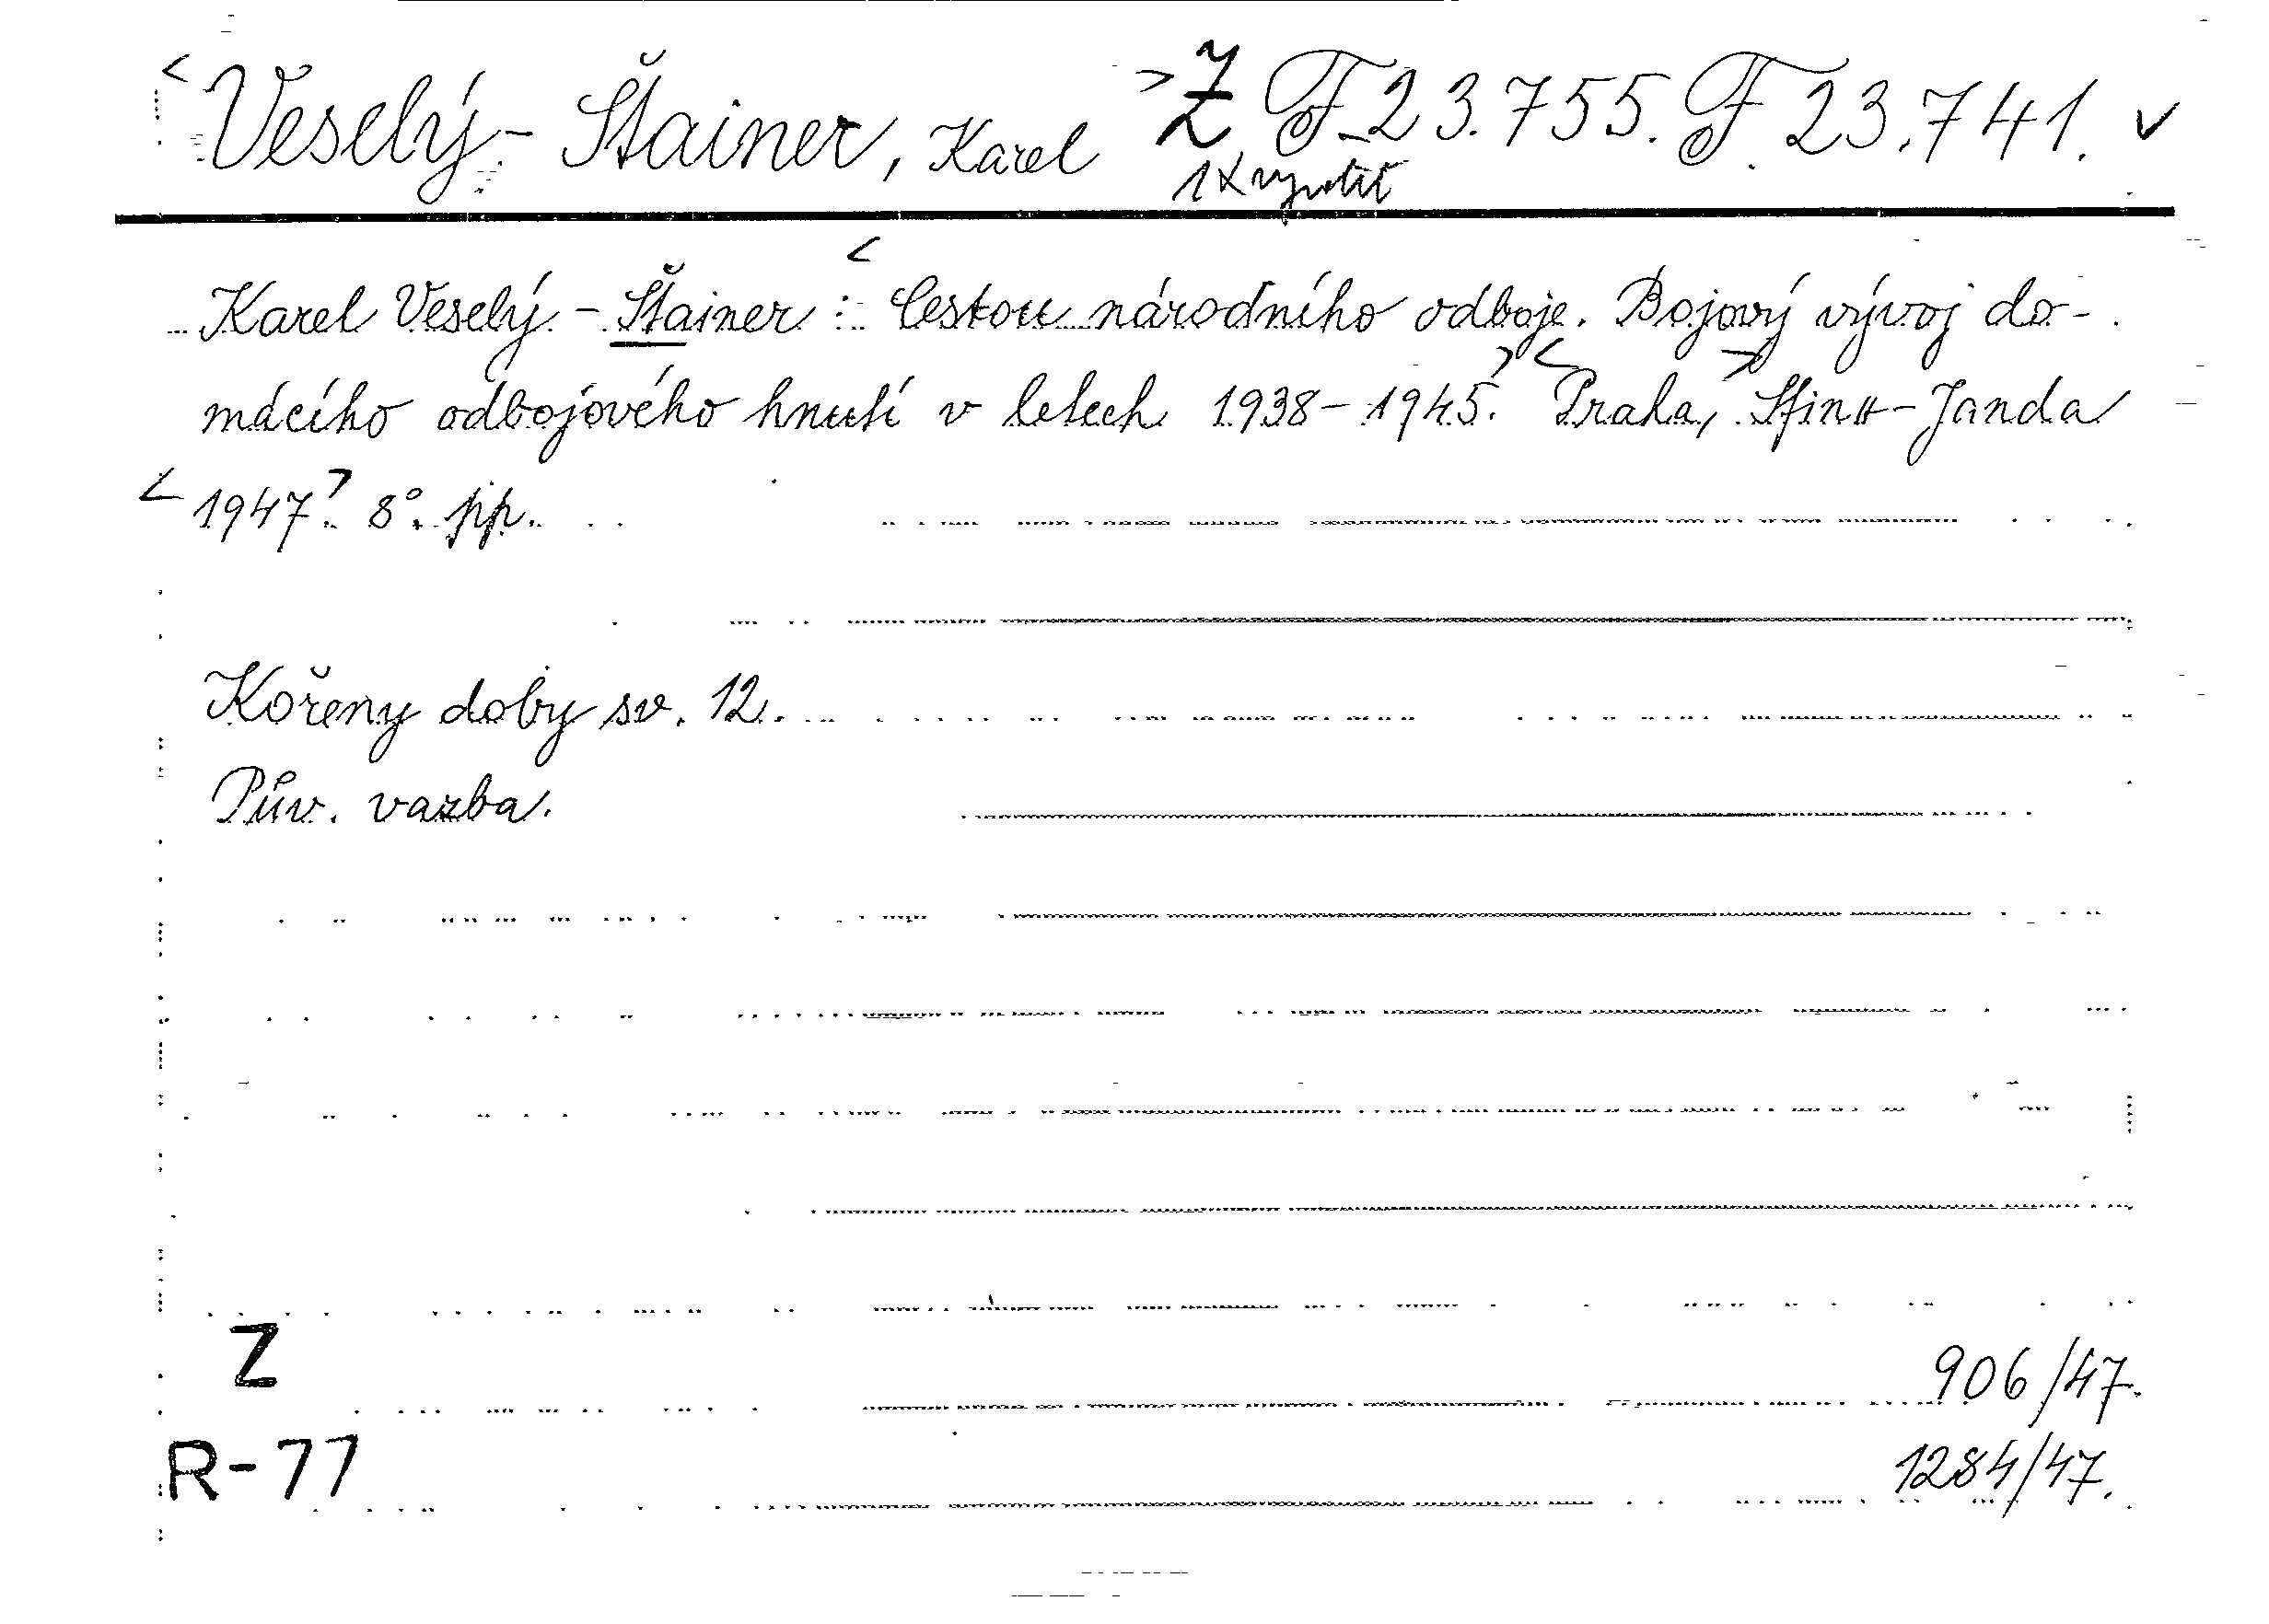 < Veselý-Štainer, Karel > Z F 23.755. F 23.741. v
1x
Karel Veselý-Štainer: < Cestou národního odboje. Bojový vývoj do-
mácího odbojového hnutí v letech 1938-1945. > < Praha, > Sfinx-Janda
< 1947 >. 8°. pp.
Kořeny doby sv. 12.
Pův. vazba.
Z
906/47.
R-77
1284/47.